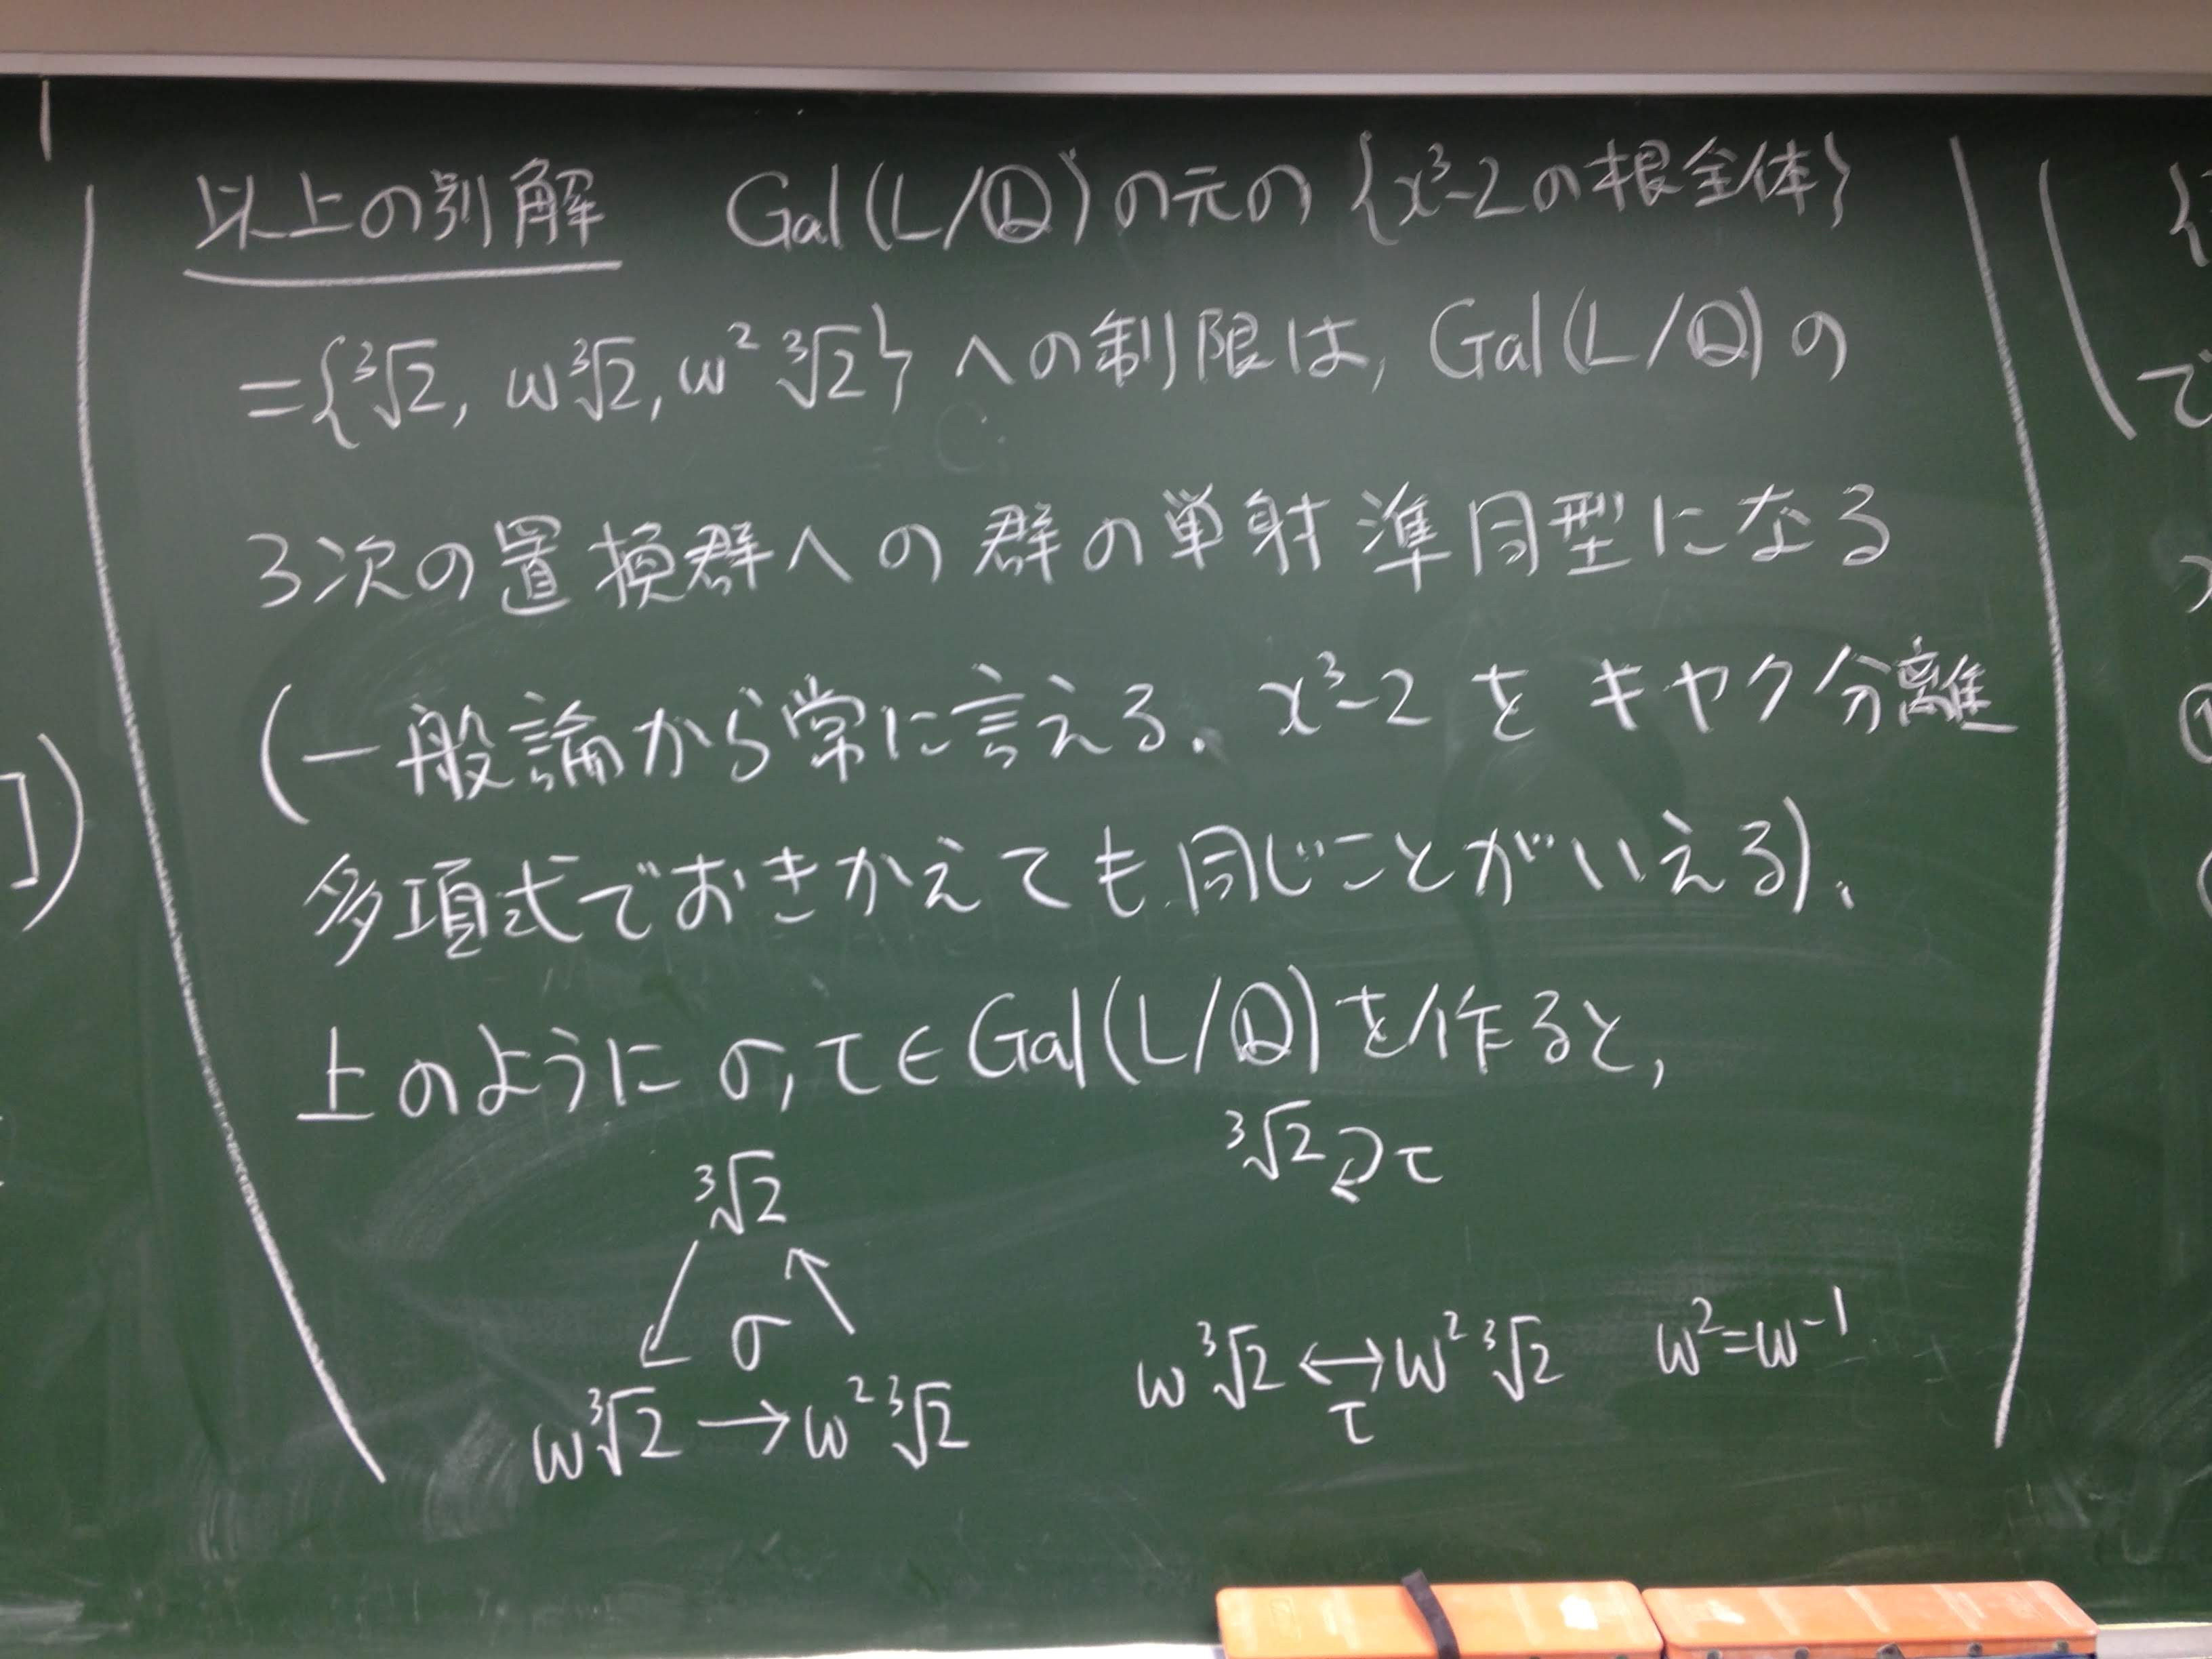 以上の別解 Gal(L/ℚ)の元の {x³-2の根全体}
={∛2, ω∛2, ω²∛2} への制限は, Gal(L/ℚ)の
3次の置換群への群の単射準同型になる
(一般論から常に言える. x³-2 を キヤク分離
多項式でおきかえても同じことがいえる).
上のように σ, τ ∈ Gal(L/ℚ) を作ると,
∛2 τ
∛2
σ
ω∛2 → ω²∛2
ω∛2 ↔ ω²∛2 ω²=ω⁻¹
τ